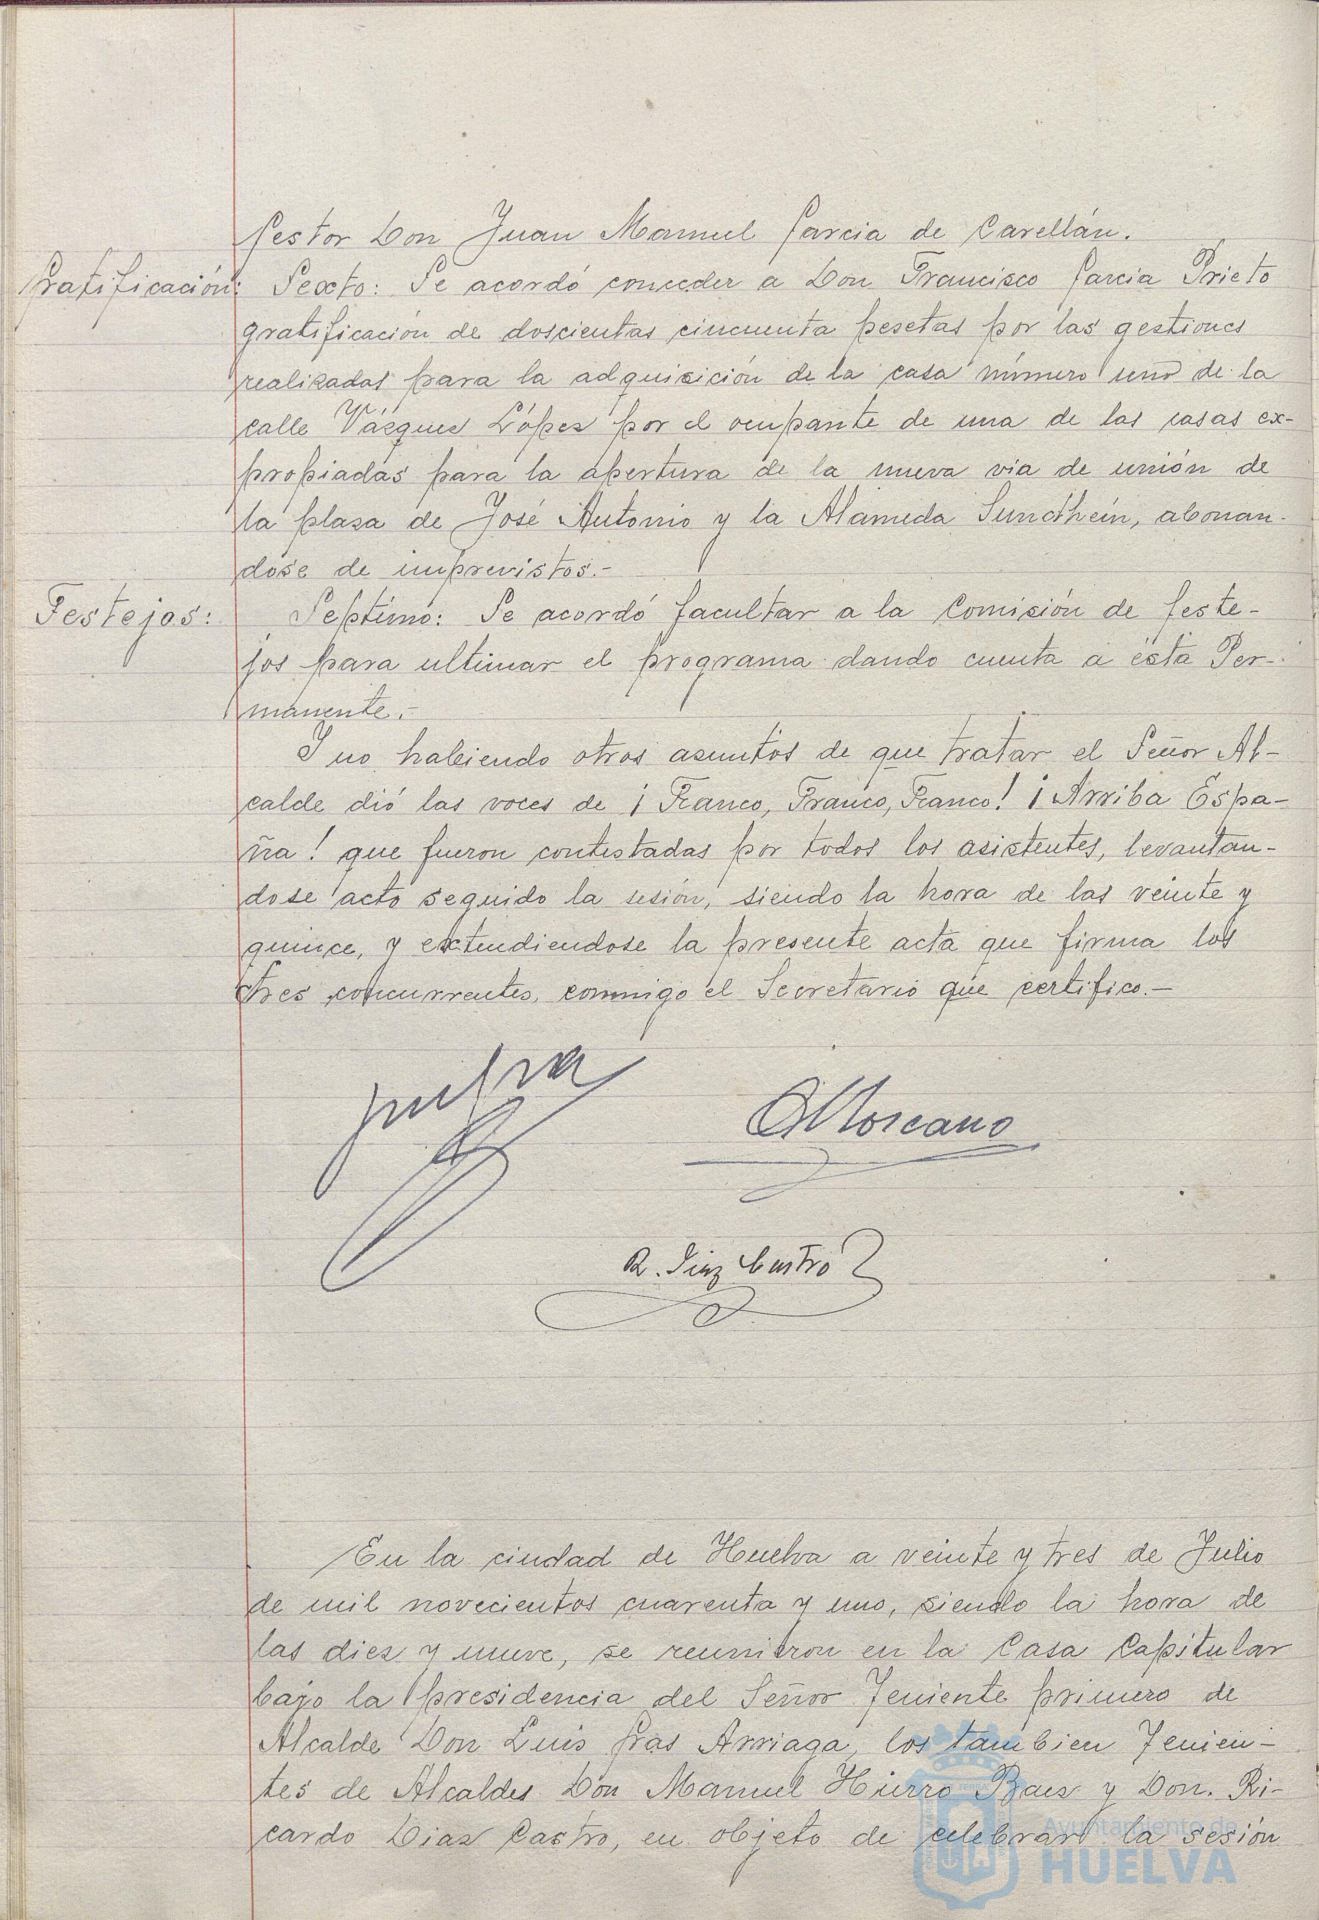 Gestor Don Juan Manuel Garcia de Carellán.
Gratificación: Sexto: Se acordó conceder a Don Francisco Garcia Prieto
gratificación de doscientas cincuenta pesetas por las gestiones
realizadas para la adquisición de la casa número uno de la
calle Vázquez López por el ocupante de una de las casas ex-
propiadas para la apertura de la nueva via de unión de
la plaza de José Antonio y la Alameda Sundhein, abonan-
dose de imprevistos.-
Festejos: Septimo: Se acordó facultar a la Comisión de feste-
jos para ultimar el programa dando cuenta a ésta Per-
manente.-
Y no habiendo otros asuntos de que tratar el Señor Al-
calde dió las voces de ¡Franco, Franco, Franco! ¡Arriba Espa-
ña! que fueron contestadas por todos los asistentes, levantan-
dose acto seguido la sesión, siendo la hora de las veinte y
quince, y extendiendose la presente acta que firma los
tres concurrentes, conmigo el Secretario que certifico.-
R. Diaz Castro
En la ciudad de Huelva a veinte y tres de Julio
de mil novecientos cuarenta y uno, siendo la hora de
las diez y nueve, se reunieron en la Casa Capitular
bajo la presidencia del Señor Teniente primero de
Alcalde Don Luis Gras Arriaga, los tambien Tenien-
tes de Alcaldes Don Manuel Hierro Baez y Don. Ri-
cardo Diaz Castro, en objeto de celebrar la sesión
Ayuntamiento de
HUELVA